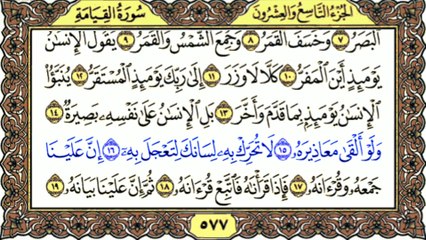 الجزء التاسع والعشرون
سورة القيامة
البصر ٧ وخسف القمر ٨ وجمع الشمس والقمر ٩ يقول الإنسان
يومئذ أين المفر ١٠ كلا لا وزر ١١ إلى ربك يومئذ المستقر ١٢ ينبؤا
الإنسان يومئذ بما قدم وأخر ١٣ بل الإنسان على نفسه بصيرة ١٤
ولو ألقى معاذيره ١٥ لا تحرك به لسانك لتعجل به ١٦ إن علينا
جمعه وقرءانه ١٧ فإذا قرأنه فاتبع قرءانه ١٨ ثم إن علينا بيانه ١٩
٥٧٧